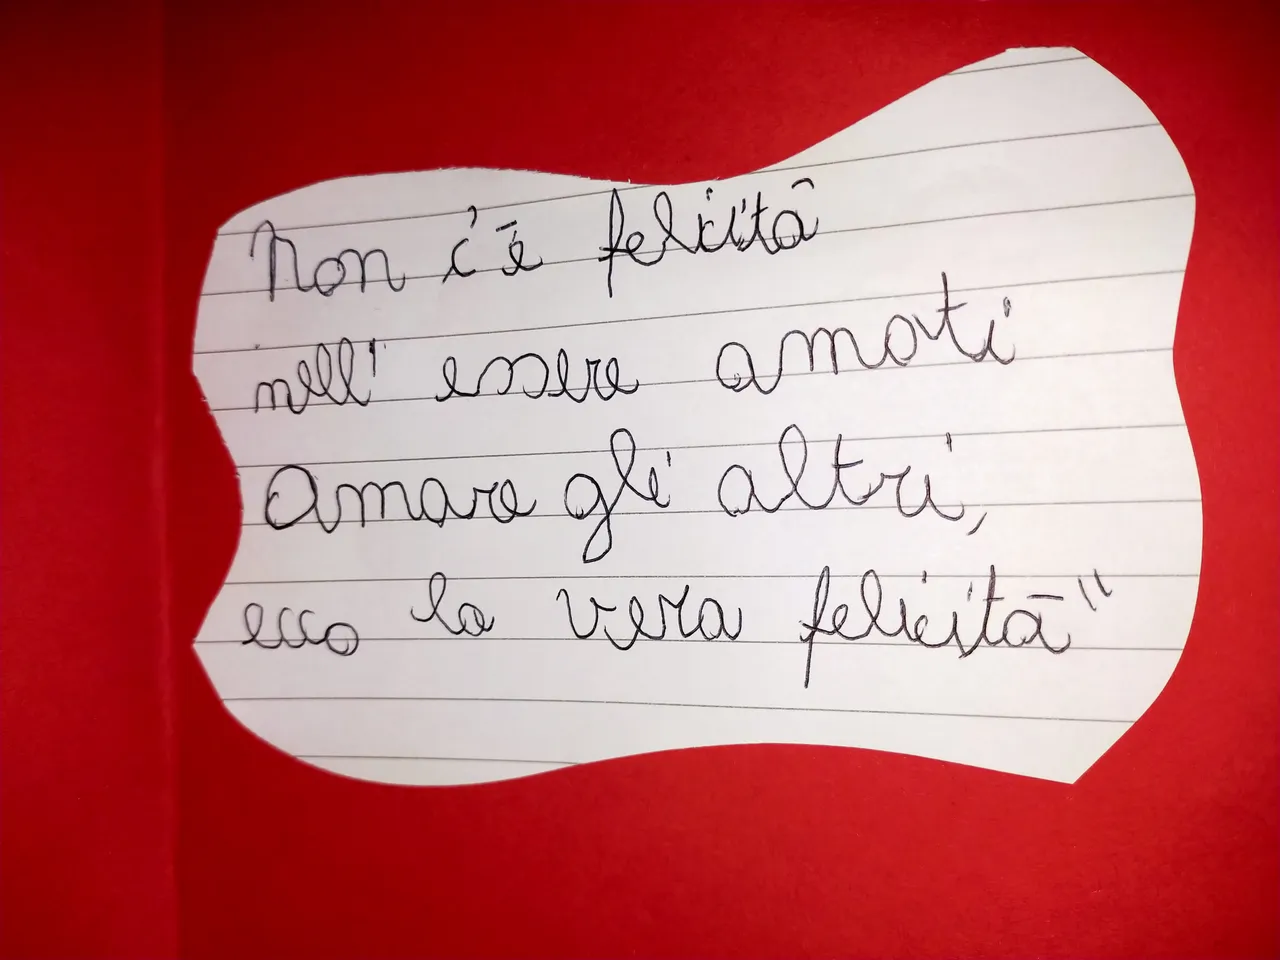 Non c'è felicità
nell' essere amati
Amare gli altri,
ecco la vera felicità"